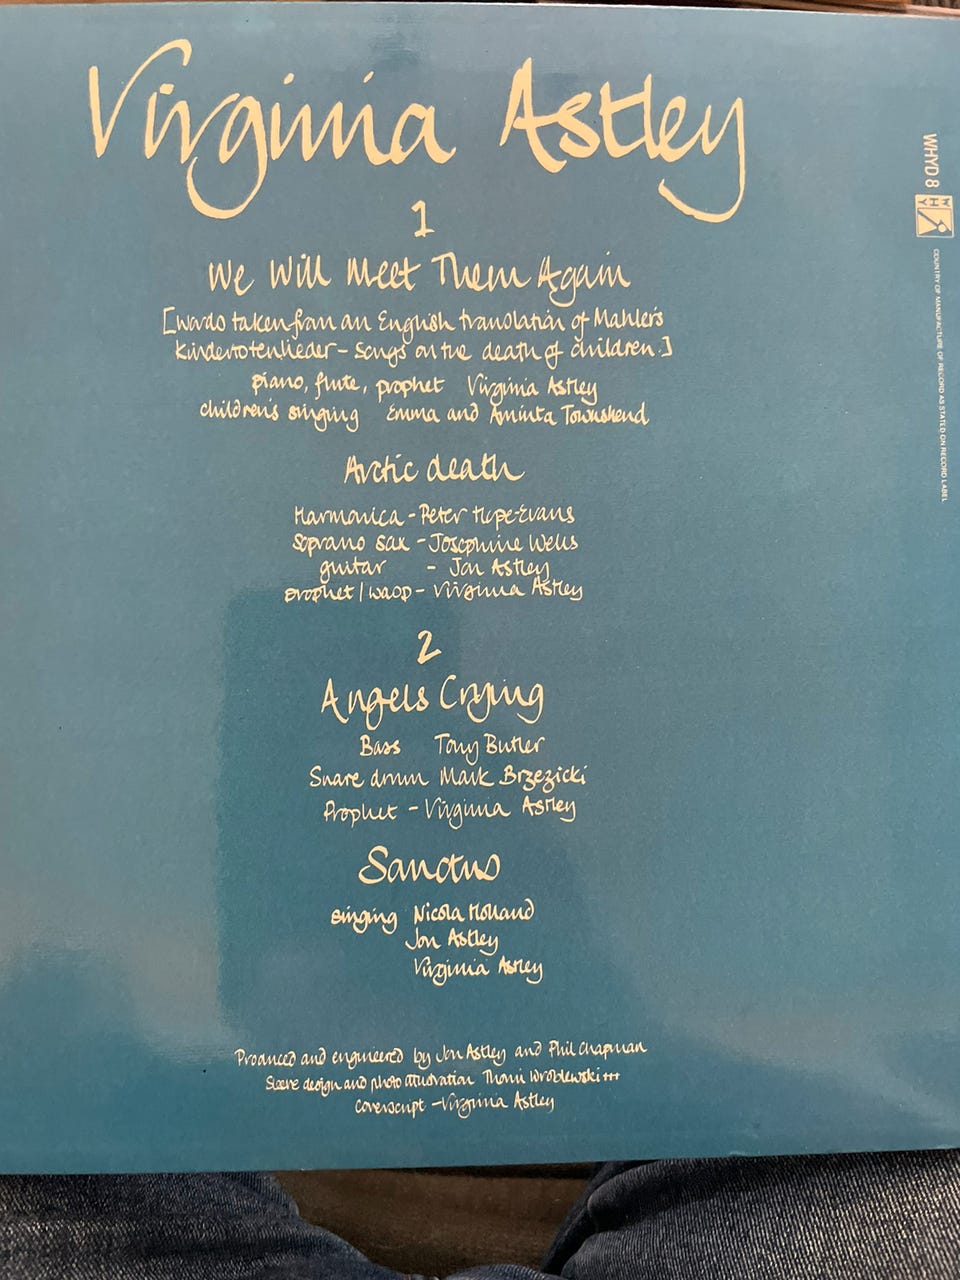 Virginia Astley
1
We Will Meet Them Again
[words taken from an English translation of Mahler's
Kindertotenlieder - Songs on the death of children.]
piano, flute, prophet Virginia Astley
children's singing Emma and Aminta Townshend
Arctic death
Harmonica - Peter Hope-Evans
Soprano sax - Josephine Wells
guitar - Jon Astley
prophet / wasp - Virginia Astley
2
Angels Crying
Bass Tony Butler
Snare drum Mark Brzezicki
Prophet - Virginia Astley
Sanctus
singing Nicola Holland
Jon Astley
Virginia Astley
Produced and engineered by Jon Astley and Phil Chapman
Sleeve design and photo illustration Thomi Wroblewski +++
Coverscript - Virginia Astley
WHYD 8
WHY
COUNTRY OF MANUFACTURE OF RECORD AS STATED ON RECORD LABEL